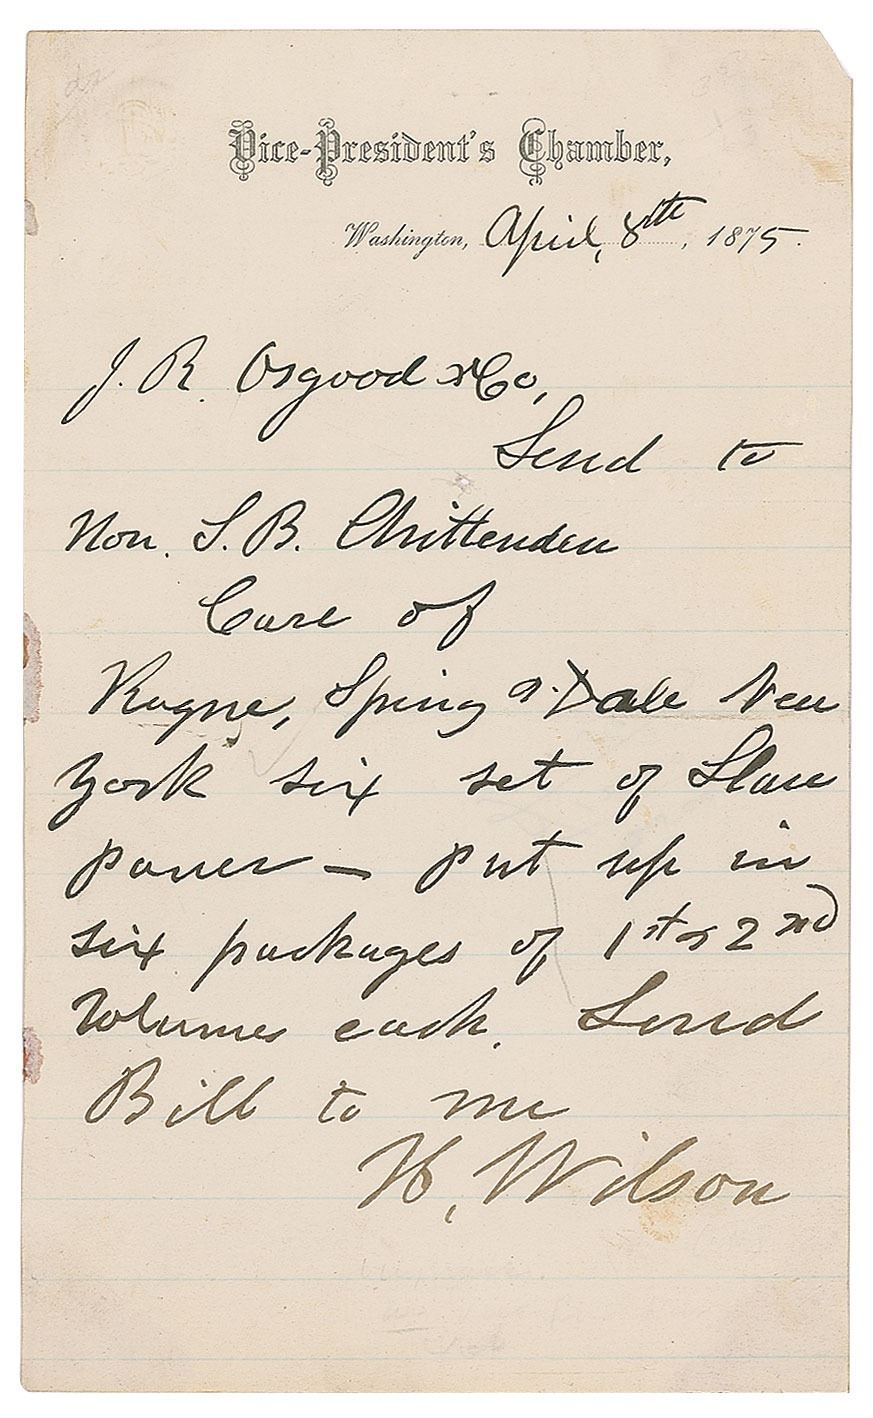 Vice-President's Chamber,
Washington, April, 8th, 1875.
J. R. Osgood & Co,
Send to
Hon. S. B. Chittenden
Care of
Spring & Dale New
York six set of Slave
power — put up in
six packages of 1st & 2nd
Volumes each. Send
Bill to me
H, Wilson